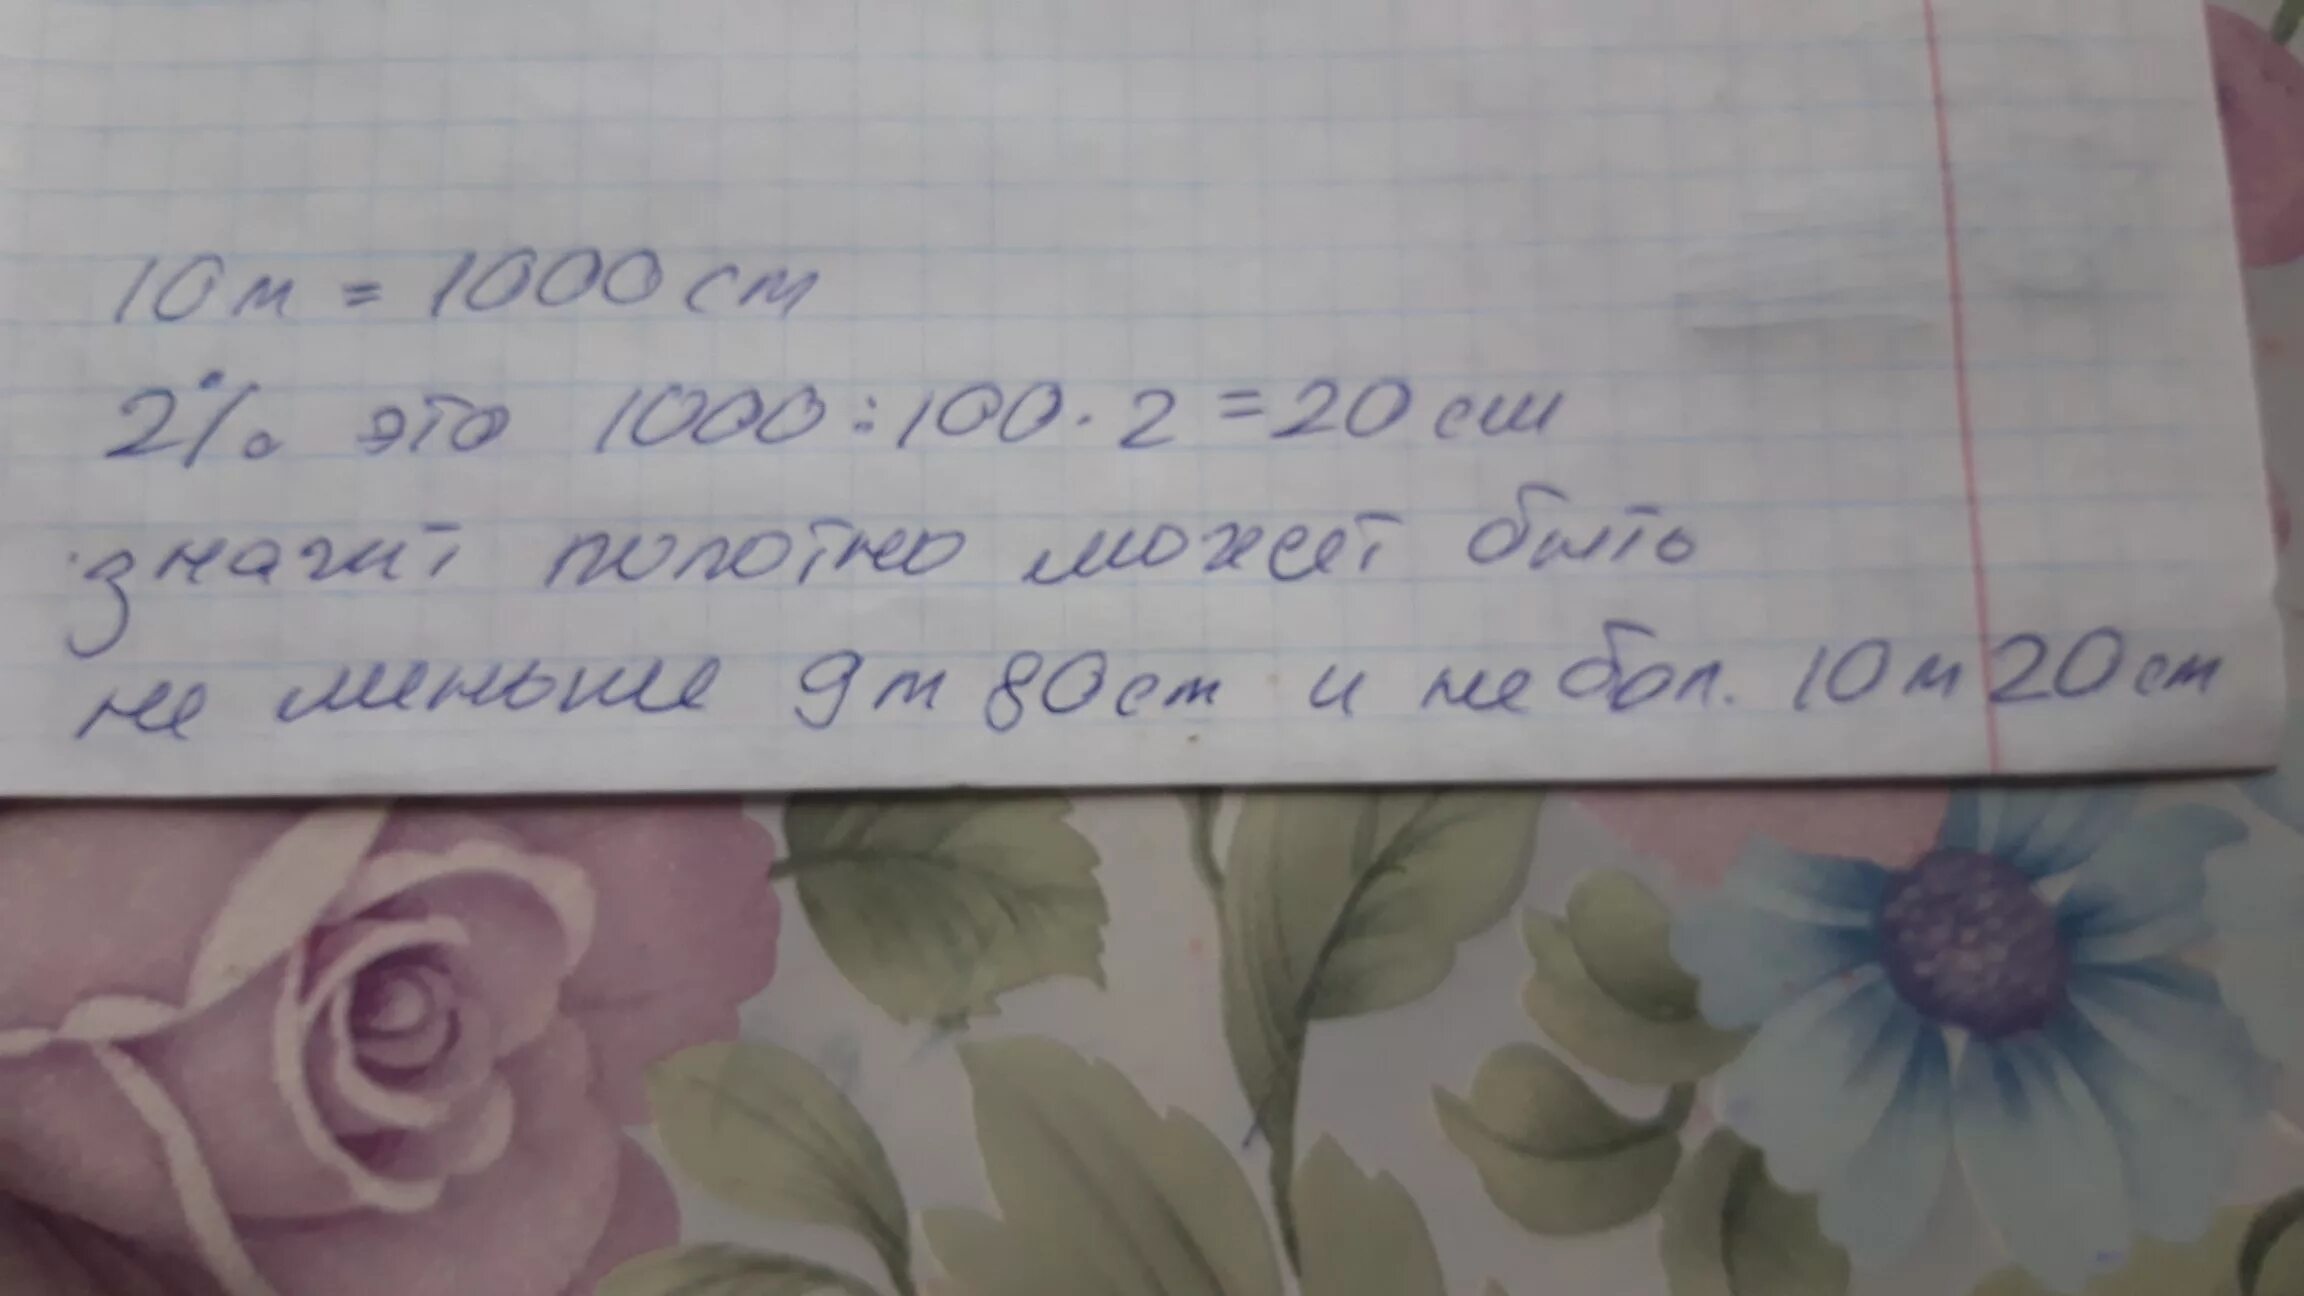 10м = 1000 см
2% это 1000 : 100 · 2 = 20 см
значит полотно может быть
не меньше 9м 80см и не бол. 10м 20см